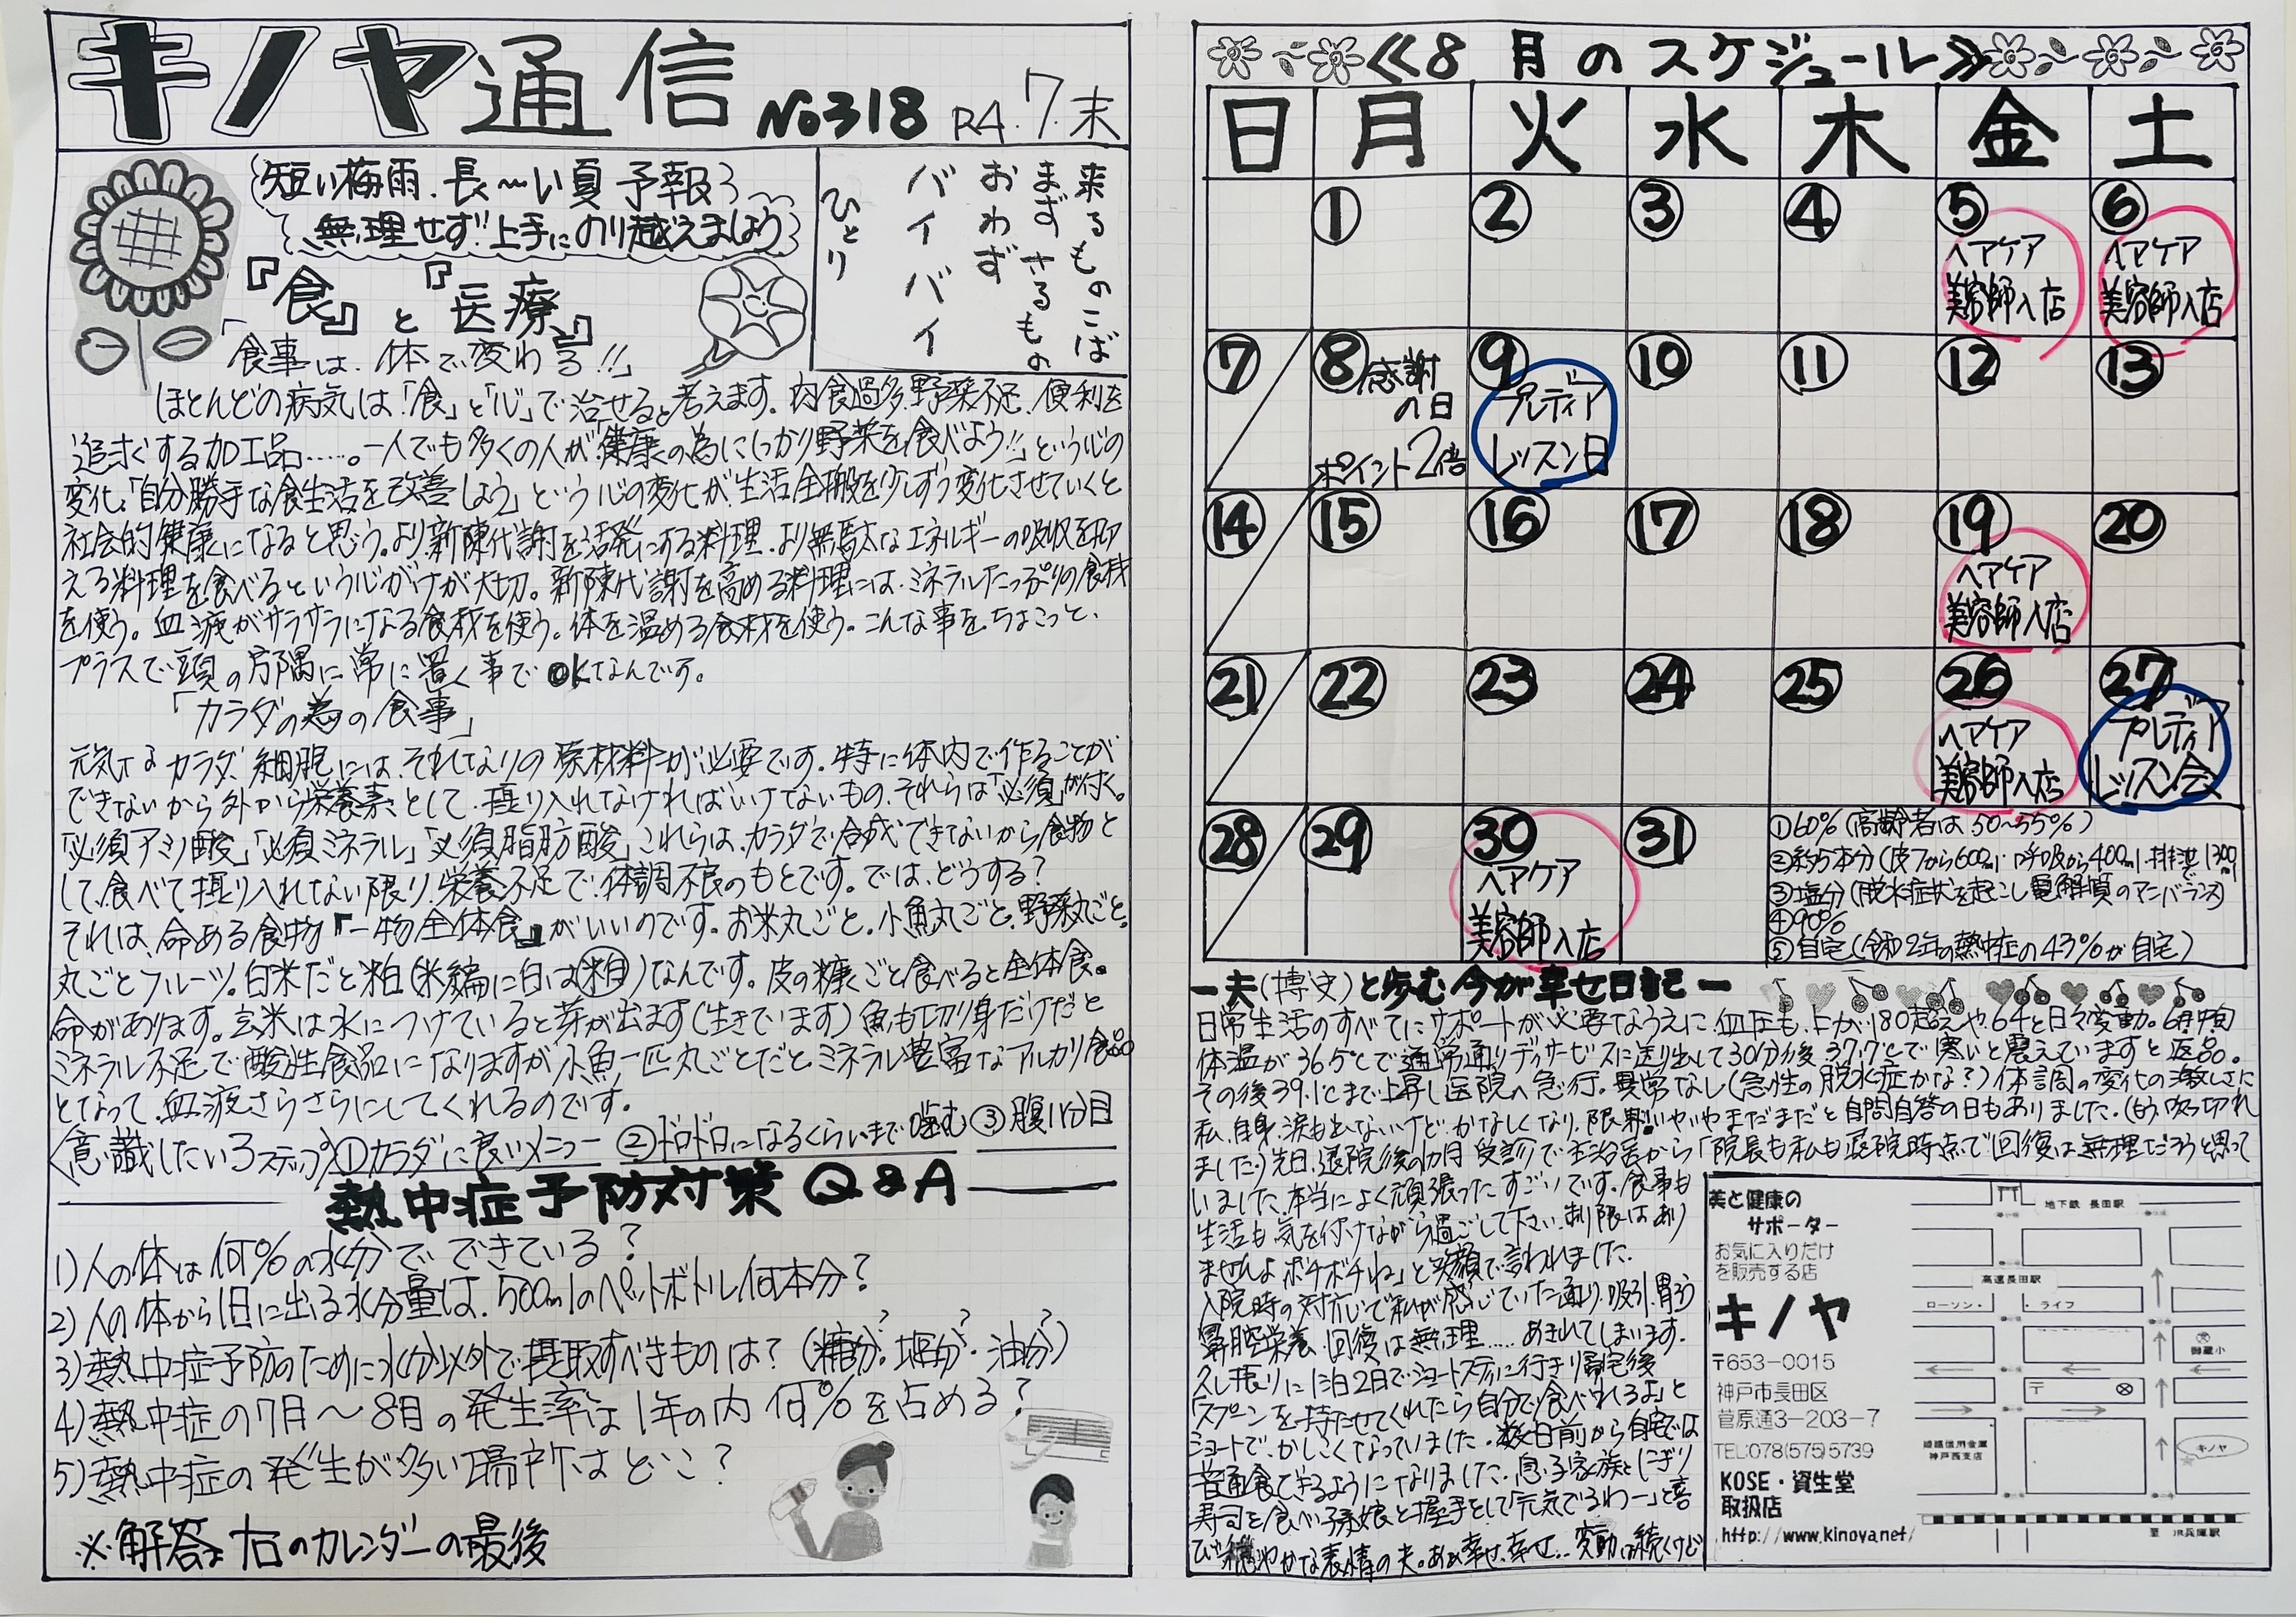 キノヤ通信 No318 R4.7.末
短い梅雨.長〜い夏予報
無理せず上手にのり越えましょう
来るものこば
まず さるもの
おわず
バイバイ
ひとり
『食』と『医療』
「食事は、体で変わる!!」
ほとんどの病気は「食」と「心」で治せると考えます。肉食過多.野菜不足.便利を
追求する加工品……。一人でも多くの人が「健康の為にしっかり野菜を食べよう!!」という心の
変化、「自分勝手な食生活を改善しよう」という心の変化が、生活全般を少しずつ変化させていくと
社会的健康になると思う。より新陳代謝を活発にする料理.より無駄なエネルギーの吸収を抑
える料理を食べるという心がけが大切。新陳代謝を高める料理には.ミネラルたっぷりの食材
を使う。血液がサラサラになる食材を使う。体を温める食材を使う。こんな事をちょこっと、
プラスで頭の片隅に常に置く事でOKなんです。
「カラダの為の食事」
元気なカラダ、細胞には、それなりの原材料が必要です。特に体内で作ることが
できないから外から栄養素として、摂り入れなければいけないもの、それらは「必須」が付く。
「必須アミノ酸」「必須ミネラル」「必須脂肪酸」これらは、カラダで合成できないから食物と
して、食べて摂り入れない限り、栄養不足で、体調不良のもとです。では、どうする?
それは、命ある食物『一物全体食』がいいのです。お米丸ごと。小魚丸ごと。野菜丸ごと。
丸ごとフルーツ。白米だと粕(米編に白は粕)なんです。皮の糠ごと食べると全体食。
命があります。玄米は水につけていると芽が出ます(生きています)魚も切り身だけだと
ミネラル不足で酸性食品になりますが小魚一匹丸ごとだと、ミネラル豊富なアルカリ食品
となって、血液さらさらにしてくれるのです。
〈意識したい3ステップ〉①カラダに良いメニュー ②ドロドロになるくらいまで噛む ③腹八分目
熱中症予防対策 Q&A
1)人の体は何%の水分でできている?
2)人の体から1日に出る水分量は、500mlのペットボトル何本分?
3)熱中症予防のために水分以外で摂取すべきものは?(糖分?塩分?油分?)
4)熱中症の7月〜8月の発生率は1年の内何%を占める?
5)熱中症の発生が多い場所はどこ?
※解答は右のカレンダーの最後
≪8月のスケジュール≫
日 月 火 水 木 金 土
① ② ③ ④ ⑤ ⑥
ヘアケア
美容師入店
ヘアケア
美容師入店
⑦ ⑧ ⑨ ⑩ ⑪ ⑫ ⑬
感謝
の日
ポイント2倍
プレディア
レッスン日
⑭ ⑮ ⑯ ⑰ ⑱ ⑲ ⑳
ヘアケア
美容師入店
㉑ ㉒ ㉓ ㉔ ㉕ ㉖ ㉗
ヘアケア
美容師入店
プレディア
レッスン会
㉘ ㉙ ㉚ ㉛
ヘアケア
美容師入店
①60%(高齢者は50〜55%)
②約5本分(皮フから600ml 呼吸から400ml.排泄1300ml
③塩分(脱水症状を起こし電解質のアンバランス)
④90%
⑤自宅(令和2年の熱中症の43%が自宅)
ー夫(博史)と歩む今が幸せ日記ー
日常生活のすべてにサポートが必要なうえに、血圧も.上が180超えや.64と日々変動。6月中旬
体温が36.5℃で通常通りディサービスに送り出して30分後、37.7℃で寒いと震えていますと返品。
その後39.1℃まで上昇し医院へ急行。異常なし(急性の脱水症かな?)体調の変化の激しさに
私自身、涙も出ないけど、かなしくなり、限界!!いやいやまだまだと自問自答の日もありました.(もう吹っ切れ
ました)先日、退院後の1か月受診で主治医から「院長も私も退院時点で回復は無理だろうと思って
いました.本当によく頑張った すごいです。食事も
生活も気を付けながら過ごして下さい.制限はあり
ませんよ ボチボチね」と笑顔で言われました.
入院時の対応で私が感じていた通り.吸引.胃ろう
鼻腔栄養.回復は無理……あきれてしまいます.
久し振りに1泊2日でショートスティに行き!帰宅後
「スプーンを持たせてくれたら自分で食べれるよ」と
ショートで、かしこくなっていました.数日前から自宅では
普通食できるようになりました.息子家族とにぎり
寿司を食べ孫娘と握手をして「元気でるわー」と喜
び穏やかな表情の夫。ああ幸せ.幸せ…変動は続くけど
美と健康の
サポーター
お気に入りだけ
を販売する店
キノヤ
〒653-0015
神戸市長田区
菅原通3-203-7
TEL:078(575)5739
KOSE・資生堂
取扱店
http://www.kinoya.net/
地下鉄 長田駅
高速長田駅
ローソン・ ・ライフ
御蔵小
〒
姫路信用金庫
神戸西支店
キノヤ
至 JR兵庫駅